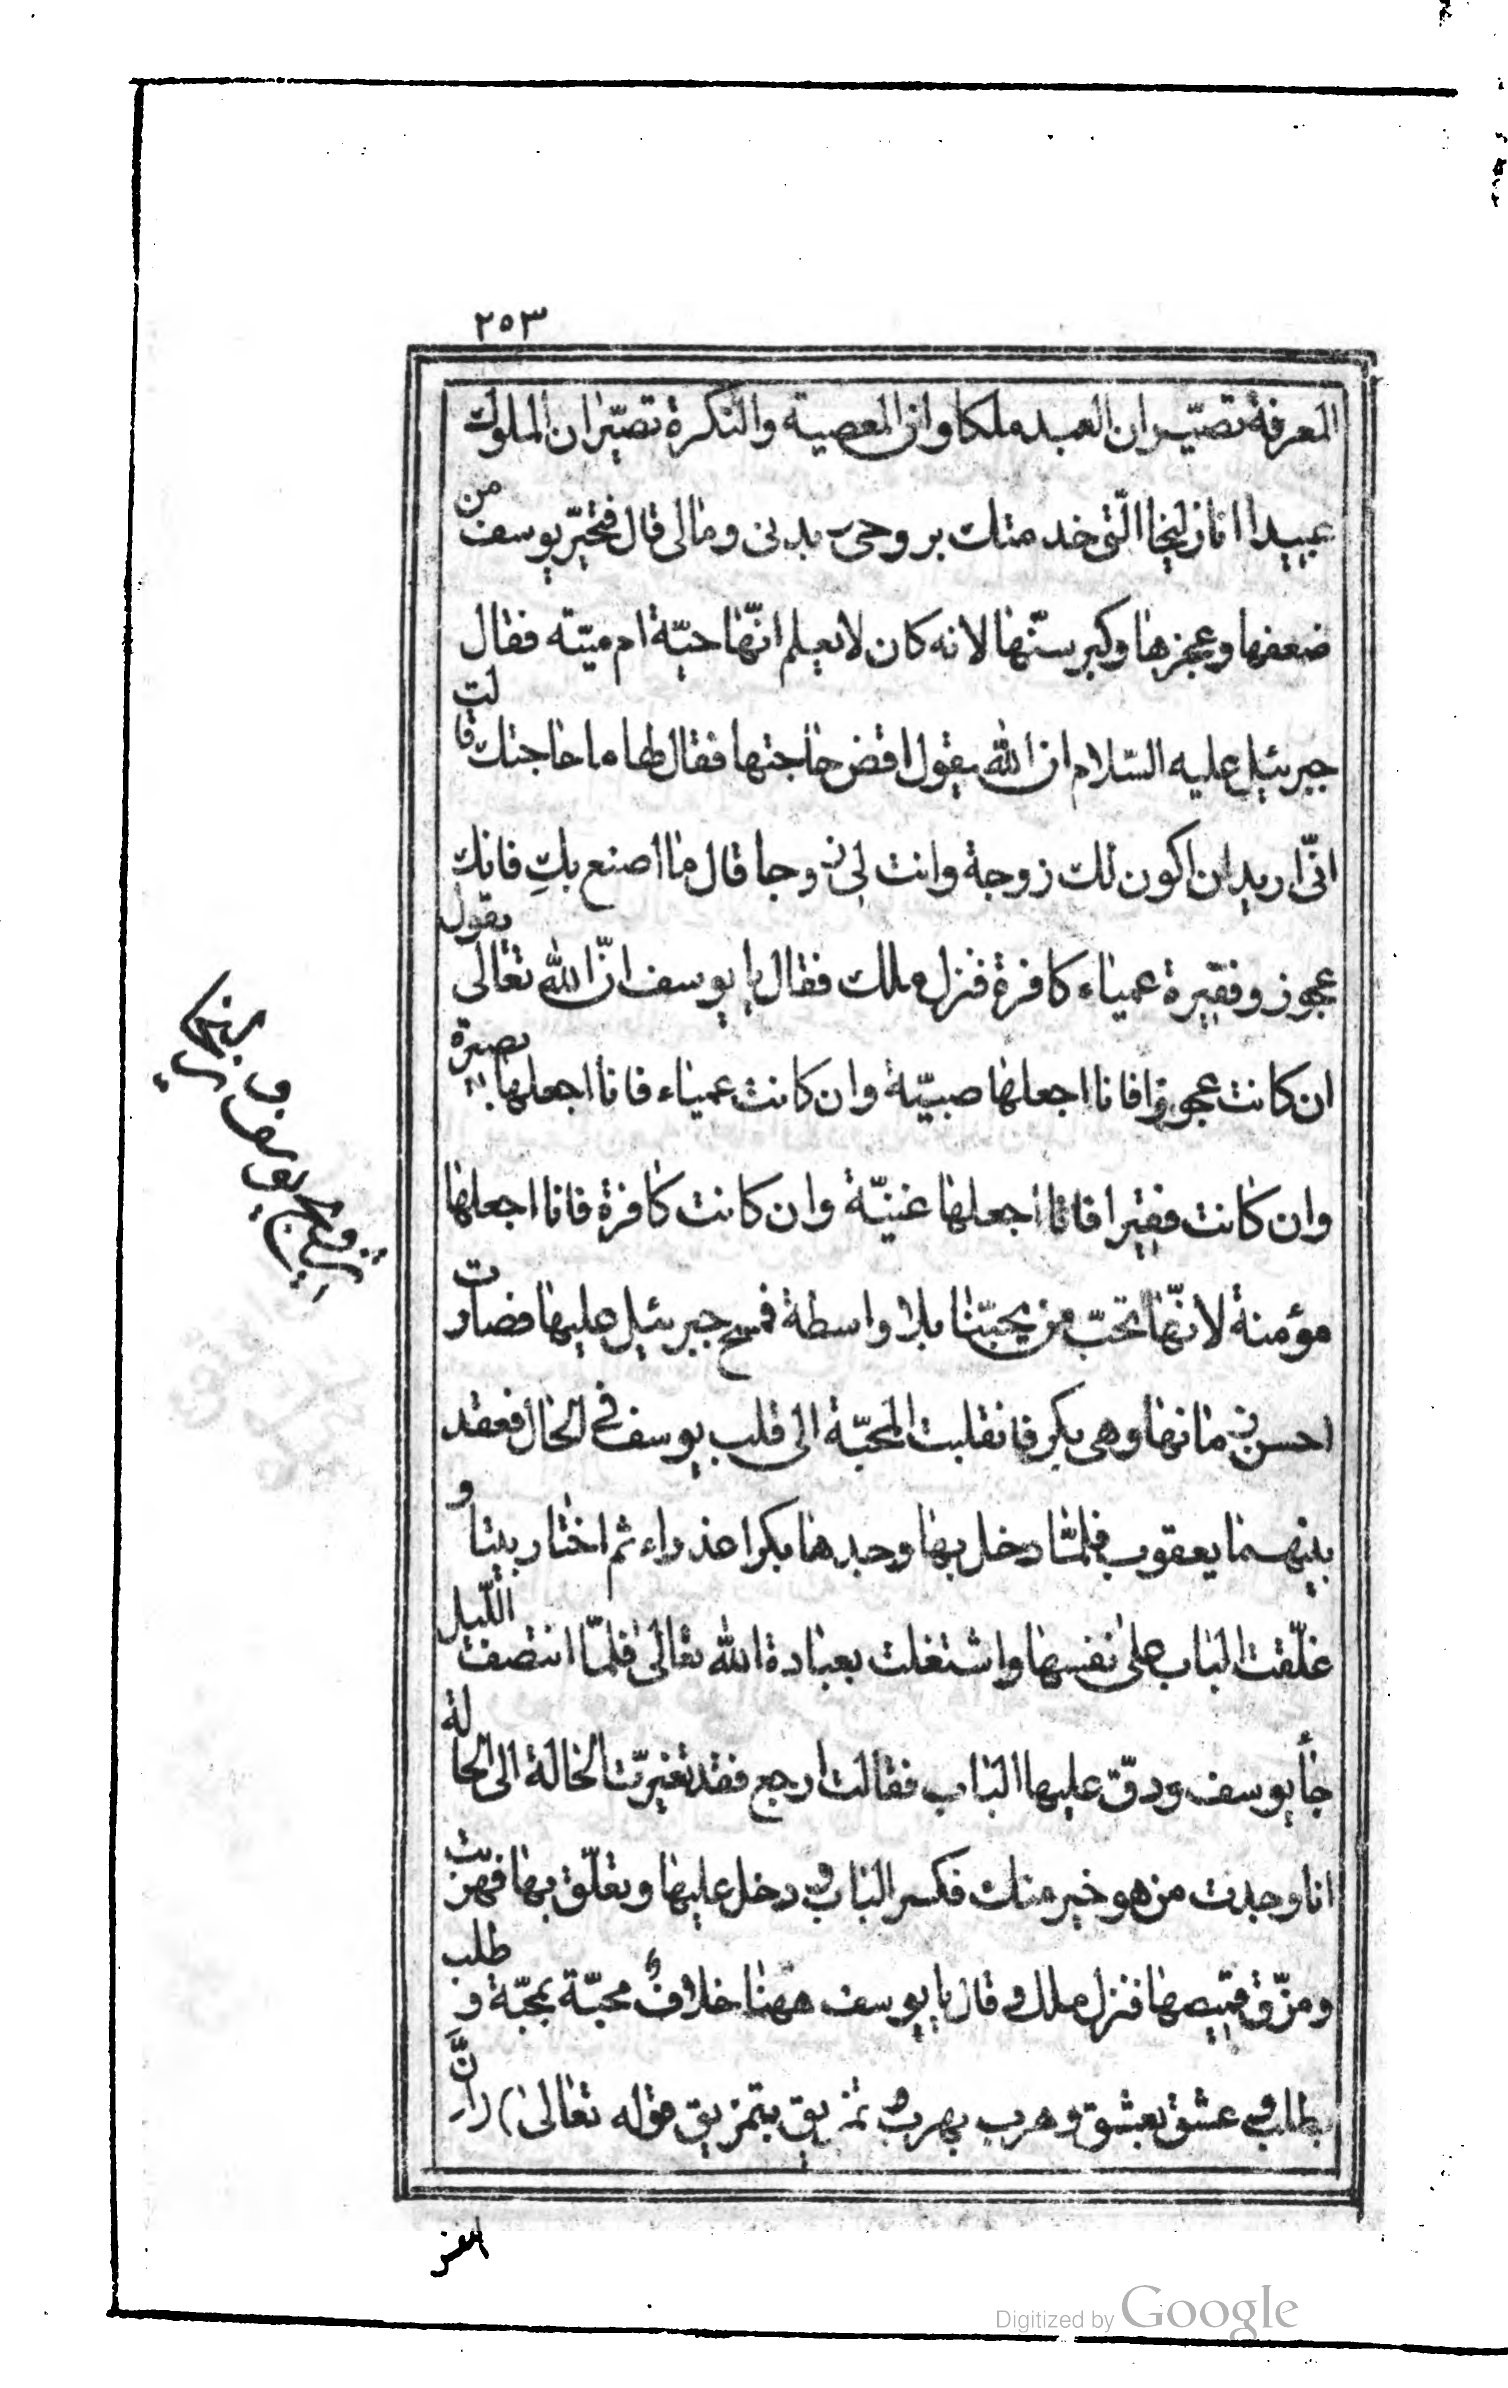 ٢٥٣
المعرفة تصيّران العبد ملكا وان المعصية والنكرة تصيّران الملوك
عبيدا انا زليخا الّتى خدمتك بروحى بدنى ومالى قال فتحيّر يوسف من
ضعفها وعجزها وكبر سنّها لانه كان لا يعلم انّها حيّة ام ميّتة فقال
جبرئيل عليه السّلام ان الله يقول اقض حاجتها فقال لها ما حاجتك قالت
انّى اريد ان اكون لك زوجة وانت لى زوجا قال ما اصنع بكِ فانك
عجوز وفقيرة عمياء كافرة فنزل ملك فقال يا يوسف انّ الله تعالى يقول
ان كانت عجوزا فانا اجعلها صبيّة وان كانت عمياء فانا اجعلها بصيرة
وان كانت فقيرا فانا اجعلها غنيّة وان كانت كافرة فانا اجعلها
مؤمنة لانّها تحبّ من يحبّنا بلا واسطة فمسح جبرئيل عليها فصارت
احسن زمانها وهى بكر فانقلبت المحبّة الى قلب يوسف فى الحال فعقد
بينهما يعقوب فلمّا دخل بها وجدها بكرا عذراء ثم اختار بيتا و
غلّقت الباب على نفسها واشتغلت بعبادة الله تعالى فلمّا انتصف اللّيل
جأ يوسف ودقّ عليها الباب فقالت ارجع فقد تغيرّت الحالة الى الحالة
انا وجدت من هو خير منك فكسر الباب و دخل عليها وتعلّق بها فهربت
ومزّق قميصها فنزل ملك و قال يا يوسف ههنا خلاف محبّة بمحبّة و طلب
بطلب و عشق بعشق وهرب بهرب و تمزيق بتمزيق قوله تعالى) راَنَّ
تزويج يوسف و زليخا